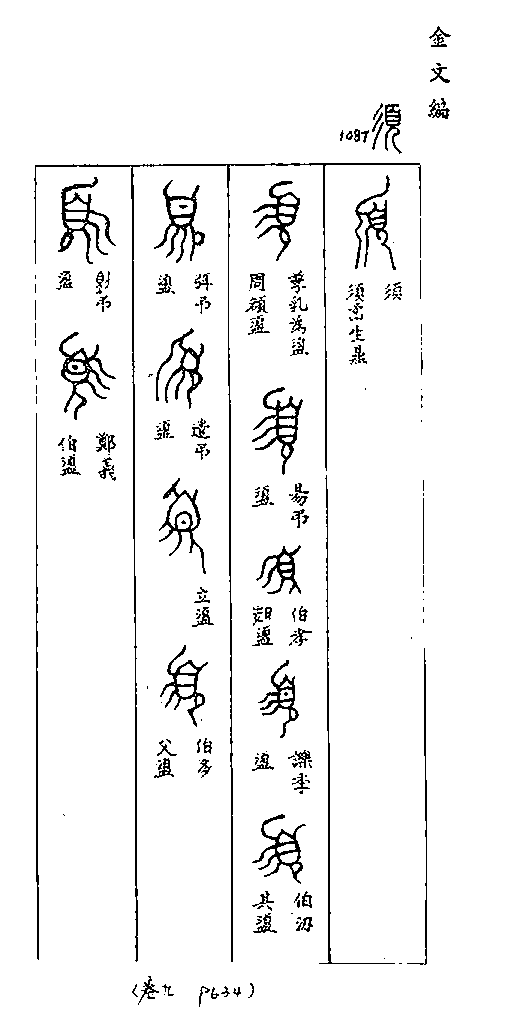 金文編
1087 須
須
須𢍰生鼎
孳乳為盨
周雒盨
昜弔
盨
伯孝
盨
諫季
盨
伯
其盨
弭弔
盨
遣弔
盨
立盨
伯多
父盨
弔
盨
鄭義
伯盨
(卷九 P634)